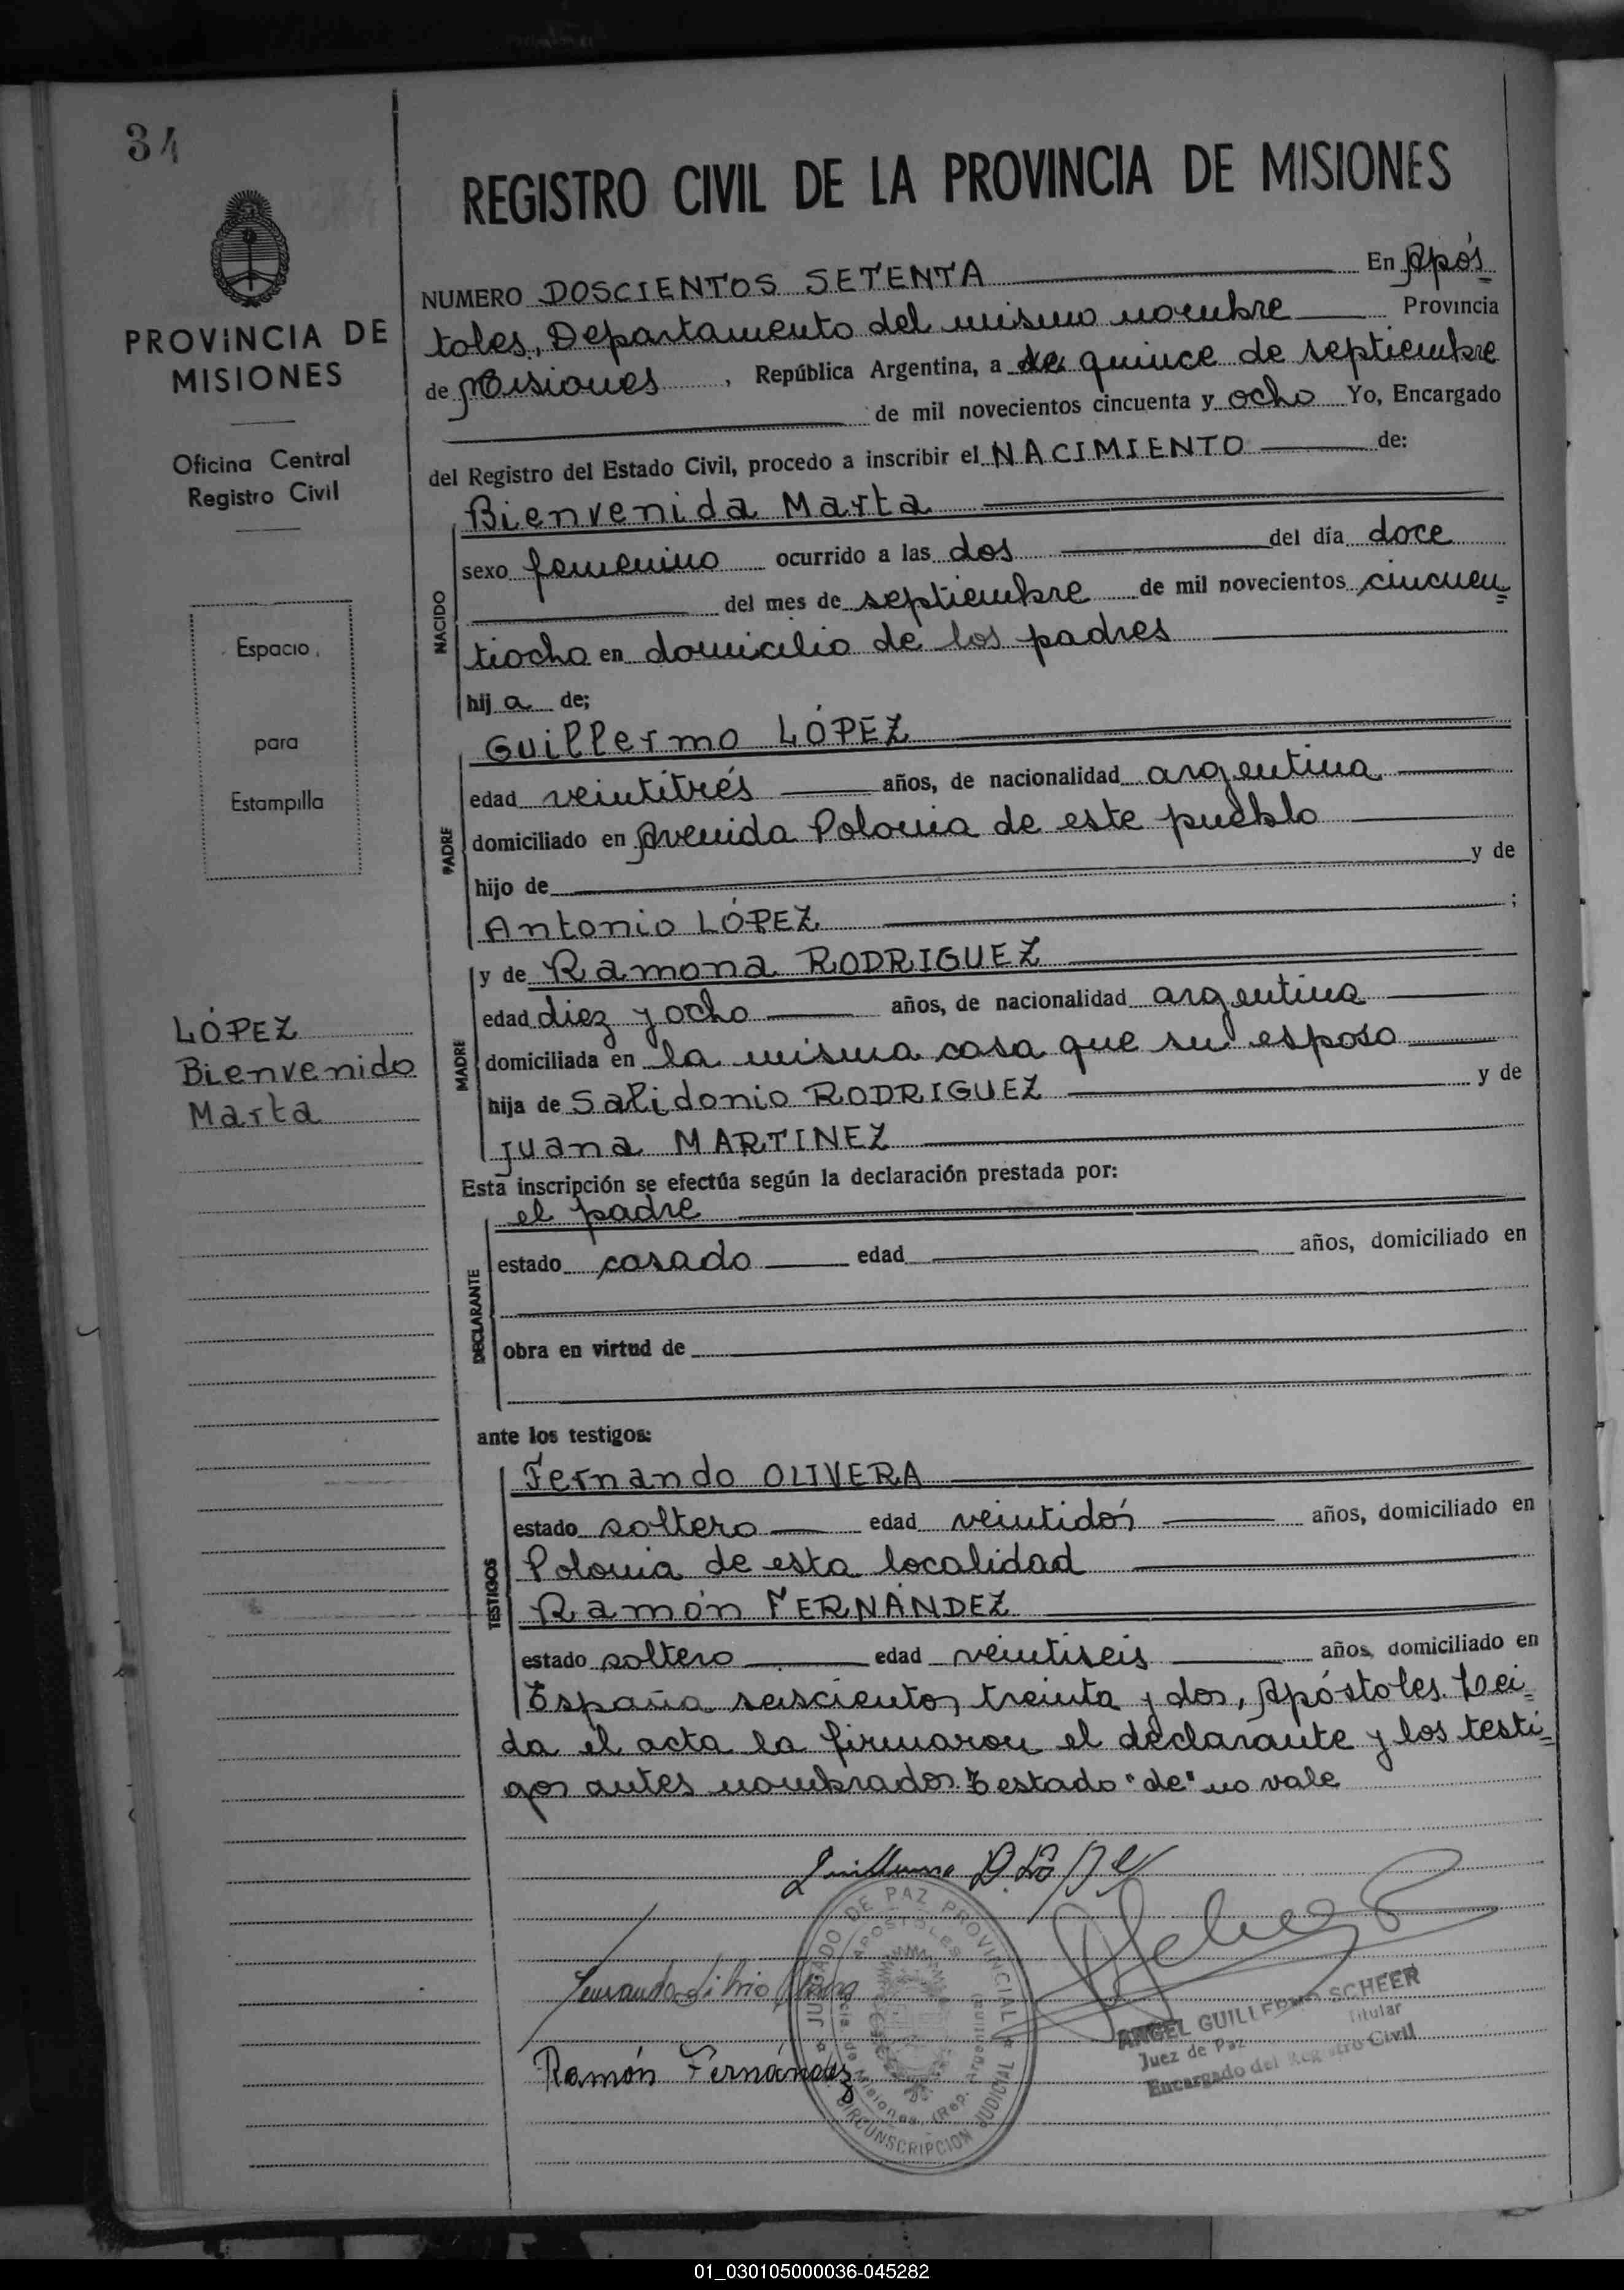 34
REGISTRO CIVIL DE LA PROVINCIA DE MISIONES
PROVINCIA DE
MISIONES
Oficina Central
Registro Civil
Espacio
para
Estampilla
LÓPEZ
Bienvenido
Marta
NUMERO DOSCIENTOS SETENTA En Após
toles, Departamento del mismo nombre Provincia
de Misiones, República Argentina, a de quince de septiembre
de mil novecientos cincuenta y ocho Yo, Encargado
del Registro del Estado Civil, procedo a inscribir el NACIMIENTO de:
NACIDO
Bienvenida Marta
sexo femenino ocurrido a las dos del día doce
del mes de septiembre de mil novecientos cincuen=
tiocho en domicilio de los padres
hij a de;
PADRE
Guillermo LÓPEZ
edad veintitrés años, de nacionalidad argentina
domiciliado en Avenida Polonia de este pueblo
hijo de y de
Antonio LÓPEZ ;
MADRE
y de Ramona RODRIGUEZ
edad diez y ocho años, de nacionalidad argentina
domiciliada en la misma casa que su esposo
hija de Salidonio RODRIGUEZ y de
Juana MARTINEZ
Esta inscripción se efectúa según la declaración prestada por:
DECLARANTE
el padre
estado casado edad años, domiciliado en
obra en virtud de
ante los testigos:
TESTIGOS
Fernando OLIVERA
estado soltero edad veintidós años, domiciliado en
Polonia de esta localidad
Ramón FERNÁNDEZ
estado soltero edad veintiseis años, domiciliado en
España seiscientos treinta y dos, Apóstoles. Lei=
da el acta la firmaron el declarante y los testi=
gos antes nombrados. Testado "de" no vale
Guillermo D. López
Fernando Silvio
Ramón Fernández
JUZGADO DE PAZ PROVINCIAL
APOSTOLES
Misiones (Rep. Argentina)
CIRCUNSCRIPCION JUDICIAL
ANGEL GUILLERMO SCHEER
Juez de Paz Titular
Encargado del Registro Civil
01_030105000036-045282